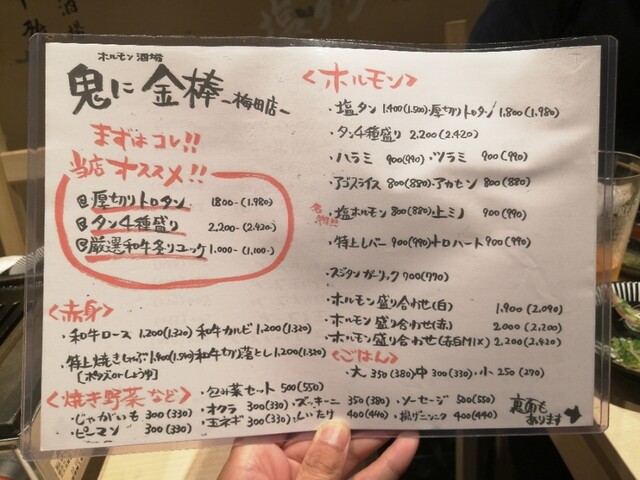 ホルモン酒場
鬼に金棒 -梅田店-
まずはコレ!!
当店オススメ!!
厚切りトロタン 1800-(1.980)
タン4種盛り 2.200-(2.420-)
厳選和牛炙りユッケ 1.000-(1,100-)
<赤身>
・和牛ロース 1.200(1.320) 和牛カルビ 1.200(1.320)
・特上焼きしゃぶ 1.400(1.540) 和牛切り落とし 1.200(1.320)
[ポンズorしょうゆ]
<焼き野菜など>
・じゃがいも 300(330)
・ピーマン 300(330)
・包み菜セット 500(550)
・オクラ 300(330)
・玉ネギ 300(330)
・ズッキーニ 350(380)
・しいたけ 400(440)
・ソーセージ 500(550)
・揚げニンニク 400(440)
<ホルモン>
・塩タン 1.400(1.500) 厚切りトロタン 1.800(1.980)
・タン4種盛り 2.200(2.420)
・ハラミ 900(990) ・ツラミ 900(990)
・アゴスライス 800(880) ・アカセン 800(880)
名物!! ・塩ホルモン 800(880) 上ミノ 900(990)
・特上レバー 900(990) ・トロハート 900(990)
・スジタンガーリック 700(770)
・ホルモン盛り合わせ(白) 1,900(2,090)
・ホルモン盛り合わせ(赤) 2.000(2,200)
・ホルモン盛り合わせ(赤白MIX) 2,200(2,420)
<ごはん>
・大 350(380) 中 300(330) ・小 250(270)
裏面も
あります